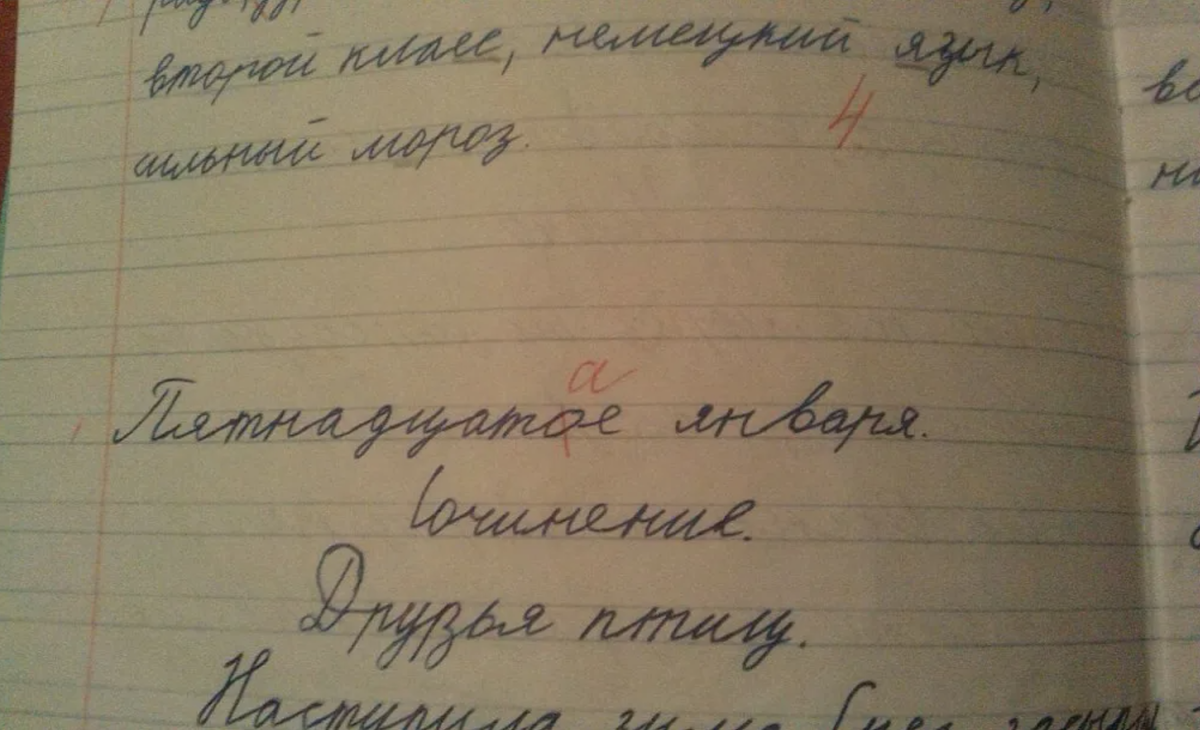 второй класс, немецкий язык,
сильный мороз.
4
а
Пятнадцатое января.
Сочинение.
Друзья птицу.
Наступила зима